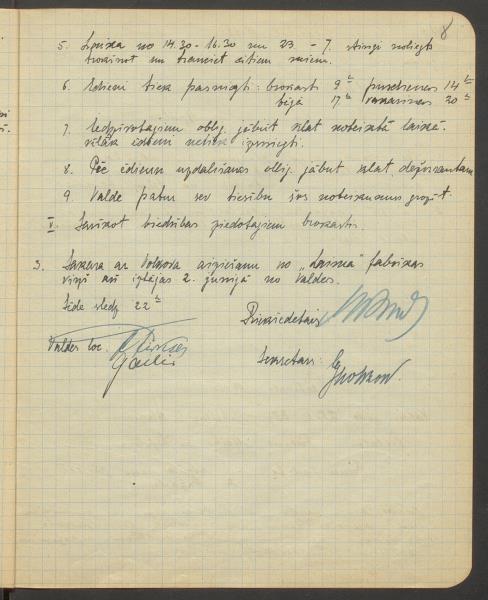 8
5. no 14.30 - 16.30 un 23. - 7. stingri noliegts
trokšņot un traucēt citiem mieru.
6. Ēdieni tiek pasniegti: brokasti 9 00 pusdienas 14 00
tēja 17 00 vakariņas 20 00
7. Iedzīvotājiem oblig. jābūt klāt noteiktā laikā.
vēlāk ēdieni netiek izsniegti.
8. Pēc ēdienu uzdalīšanas oblig. jābūt klāt dežurantam
9. Valde patur sev tiesību šos noteikumus grozīt.
V. Sarīkot biedrības ziedotājiem brokastis.
3. Sakarā ar aiziešanu no "Laima" fabrikas
viņš arī izstājas 2. jūnijā no Valdes.
Sēde slēdz 22 00
Priekšsēdētājs
Valdes loc.
Sekretārs: